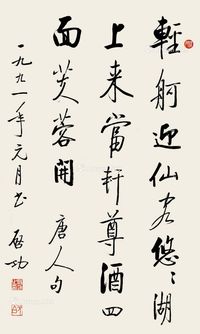 輕舸迎仙客悠〻湖
上来當軒尊酒四
面芙蓉開 唐人句
一九九一年元月书 啟功